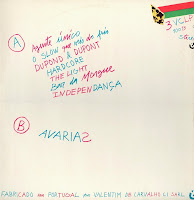 3 VCLP
A
Agente único
O SLOW que veio do frio
DUPOND & DUPONT
HARDCORE
THE LIGHT
Bar da Morgue
INDEPENDANÇA
B
AVARIAS
FABRICADO EM PORTUGAL POR VALENTIM DE CARVALHO CI SARL